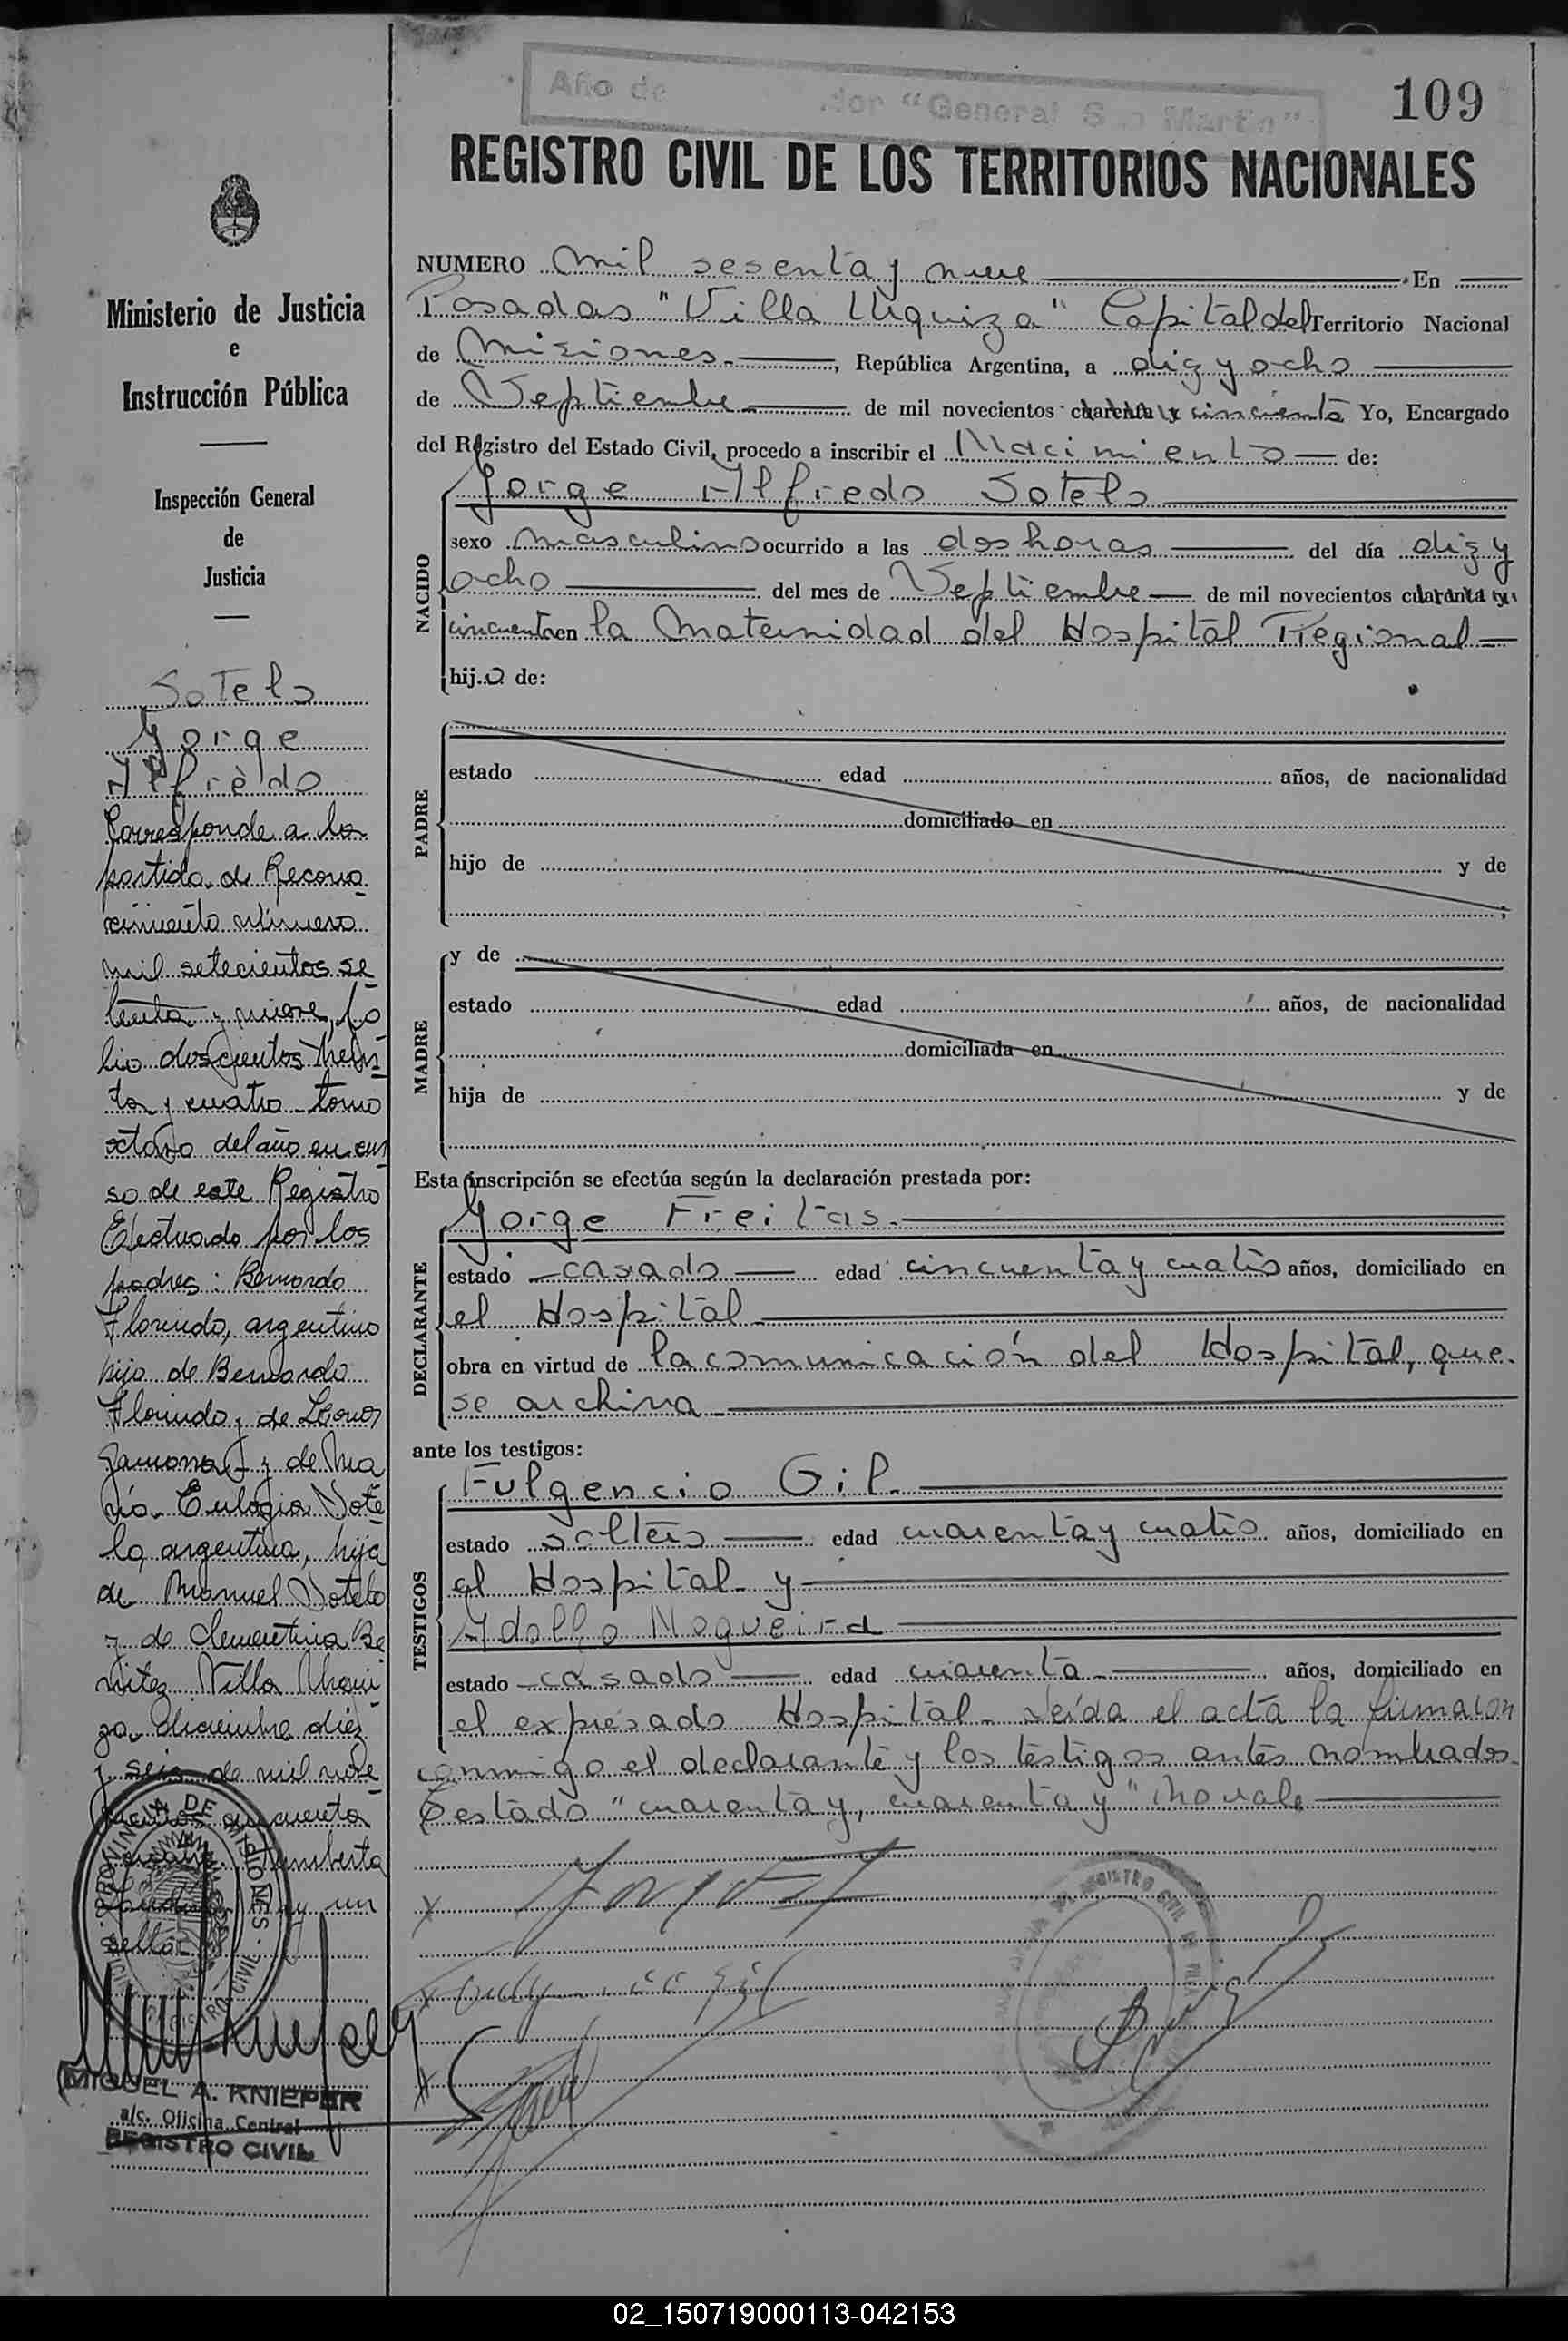 Año de dor "General San Martin"
109
REGISTRO CIVIL DE LOS TERRITORIOS NACIONALES
Ministerio de Justicia
e
Instrucción Pública
Inspección General
de
Justicia
Sotelo
Jorge
Alfredo
Corresponde a la
partida de Recono
cimiento número
mil setecientos se
tenta y nueve, fo
lio doscientos trein
ta y cuatro tomo
octavo del año en cur
so de este Registro
Efectuado por los
padres: Bernardo
Florindo, argentino
hijo de Bernardo
Florindo y de Leonor
Zamora y de Ma
ría Eulogia Sote
lo, argentina, hija
de Manuel Sotelo
y de Clementina Be
nitez. Villa Urqui
za Diciembre diez
y seis de mil nove
cientos cincuenta
Humberto
Hay un
sello
PROVINCIA DE MISIONES
REGISTRO CIVIL
MIGUEL A. KNIEPER
a/c. Oficina Central
REGISTRO CIVIL
NUMERO mil sesenta y nueve En
Posadas "Villa Urquiza" Capital del Territorio Nacional
de Misiones, República Argentina, a diez y ocho
de Septiembre de mil novecientos cuarenta y cincuenta Yo, Encargado
del Registro del Estado Civil, procedo a inscribir el Nacimiento de:
NACIDO
Jorge Alfredo Sotelo
sexo masculino ocurrido a las dos horas del día diez y
ocho del mes de Septiembre de mil novecientos cuarenta y
cincuenta en la Maternidad del Hospital Regional
hijo de:
PADRE
estado edad años, de nacionalidad
domiciliado en
hijo de y de
;
MADRE
y de
estado edad años, de nacionalidad
domiciliada en
hija de y de
Esta inscripción se efectúa según la declaración prestada por:
DECLARANTE
Jorge Freitas.
estado casado edad cincuenta y cuatro años, domiciliado en
el Hospital
obra en virtud de la comunicación del Hospital, que
se archiva
ante los testigos:
TESTIGOS
Fulgencio Gil.
estado soltero edad cuarenta y cuatro años, domiciliado en
el Hospital y
Adolfo Nogueira
estado casado edad cuarenta años, domiciliado en
el expresado Hospital. Leída el acta la firmaron
conmigo el declarante y los testigos antes nombrados.
Testado "cuarenta y, cuarenta y" no vale
REGISTRO CIVIL
02_150719000113-042153